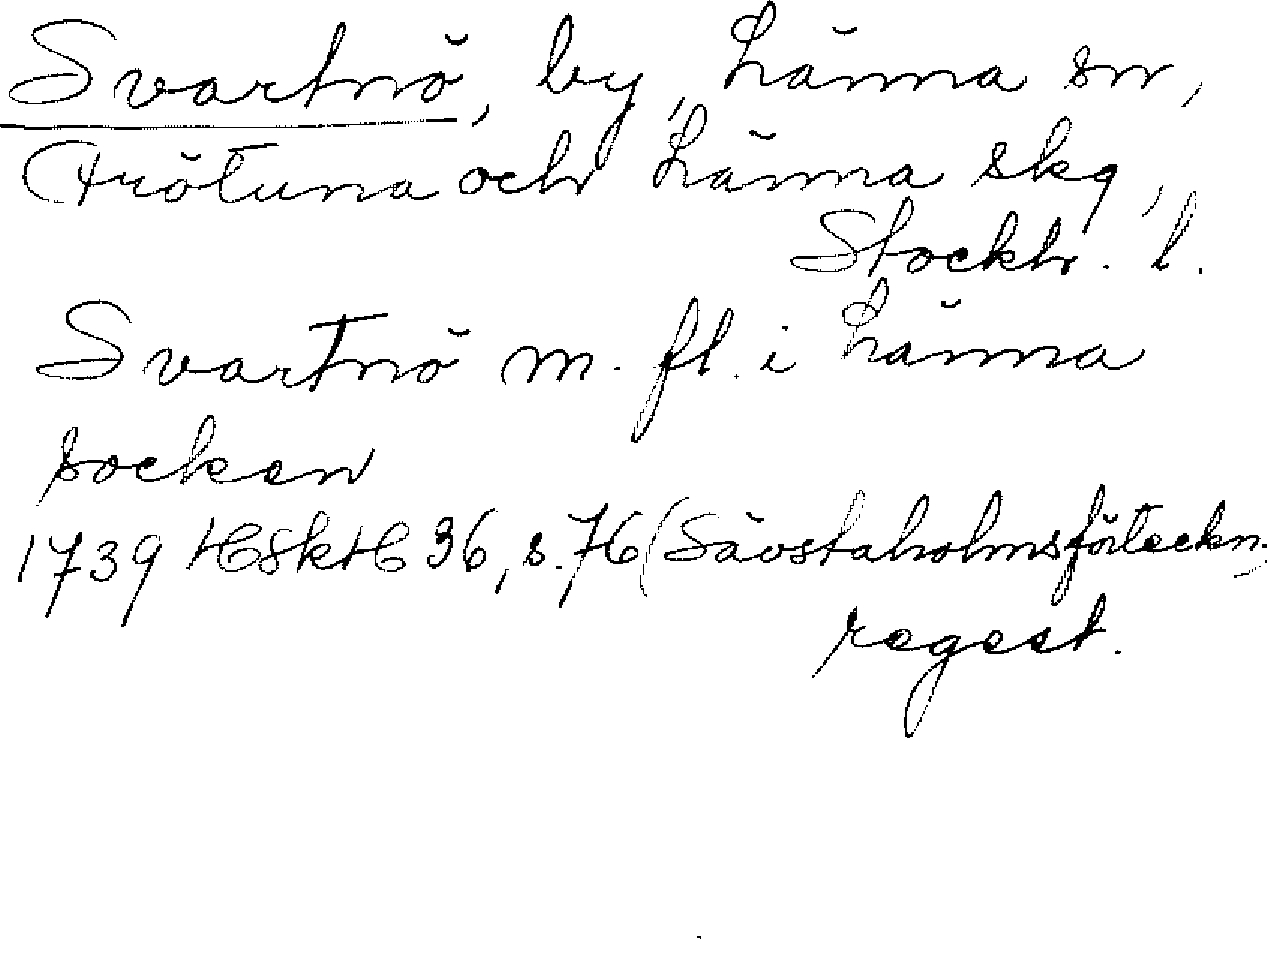 Svartnö, by, Länna sn,
Frötuna och Länna skg,
Stockh. l.
Svartnö m. fl. i Länna
socken
1739 HSkH 36, s. 76 (Sävstaholmsförteckn.)
regest.